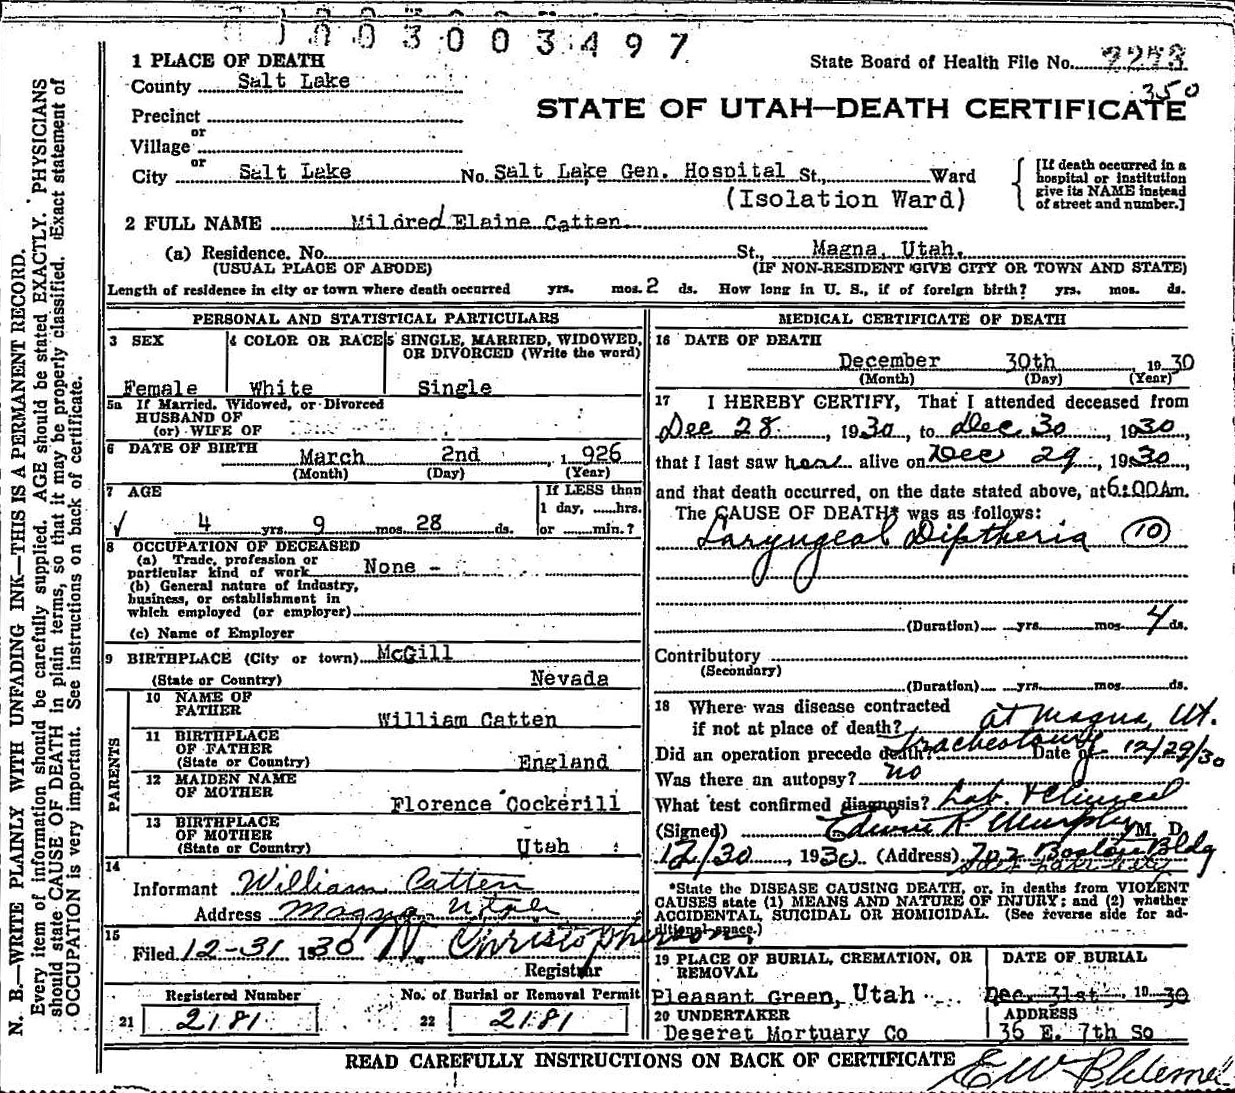 003003497
1 PLACE OF DEATH
State Board of Health File No.
County Salt Lake
350
STATE OF UTAH—DEATH CERTIFICATE
Precinct
or
Village
or
City Salt Lake No. Salt Lake Gen. Hospital St., Ward
(Isolation Ward)
[If death occurred in a
hospital or institution
give its NAME instead
of street and number.]
2 FULL NAME Mildred Elaine Catten
(a) Residence. No. St., Magna, Utah.
(USUAL PLACE OF ABODE) (IF NON-RESIDENT GIVE CITY OR TOWN AND STATE)
Length of residence in city or town where death occurred yrs. mos. 2 ds. How long in U. S., if of foreign birth? yrs. mos. ds.
PERSONAL AND STATISTICAL PARTICULARS
3 SEX 4 COLOR OR RACE 5 SINGLE, MARRIED, WIDOWED,
OR DIVORCED (Write the word)
Female White Single
5a If Married, Widowed, or Divorced
HUSBAND OF
(or) WIFE OF
6 DATE OF BIRTH
March 2nd 1926
(Month) (Day) (Year)
7 AGE
If LESS than
1 day, hrs.
4 yrs. 9 mos. 28 ds. or min.?
8 OCCUPATION OF DECEASED
(a) Trade, profession or
particular kind of work None -
(b) General nature of industry,
business, or establishment in
which employed (or employer)
(c) Name of Employer
9 BIRTHPLACE (City or town) McGill
(State or Country) Nevada
PARENTS
10 NAME OF
FATHER
William Catten
11 BIRTHPLACE
OF FATHER
(State or Country) England
12 MAIDEN NAME
OF MOTHER
Florence Cockerill
13 BIRTHPLACE
OF MOTHER
(State or Country) Utah
14
Informant William Catten
Address Magna Utah
15
Filed 12-31 1930 N. Christopherson,
Registrar
Registered Number No. of Burial or Removal Permit
21 2181 22 2181
MEDICAL CERTIFICATE OF DEATH
16 DATE OF DEATH
December 30th 1930
(Month) (Day) (Year)
17 I HEREBY CERTIFY, That I attended deceased from
Dec 28, 1930, to Dec. 30, 1930,
that I last saw her alive on Dec 29, 1930,
and that death occurred, on the date stated above, at 6:00 Am.
The CAUSE OF DEATH* was as follows:
Laryngeal Diptheria (10)
(Duration) yrs. mos. 4 ds.
Contributory
(Secondary)
(Duration) yrs. mos. ds.
18 Where was disease contracted
if not at place of death? at Magna, Ut.
Did an operation precede death? Tracheotomy Date of 12/29/30
Was there an autopsy? no
What test confirmed diagnosis? Lab. & Clinical
(Signed) Edwin R. Murphy M. D.
12/30, 1930 (Address) 702 Boston Bldg
Salt Lake City
*State the DISEASE CAUSING DEATH, or, in deaths from VIOLENT
CAUSES state (1) MEANS AND NATURE OF INJURY; and (2) whether
ACCIDENTAL, SUICIDAL OR HOMICIDAL. (See reverse side for ad-
ditional space.)
19 PLACE OF BURIAL, CREMATION, OR
REMOVAL
DATE OF BURIAL
Pleasant Green, Utah Dec. 31st 1930
20 UNDERTAKER ADDRESS
Deseret Mortuary Co 36 E. 7th So
READ CAREFULLY INSTRUCTIONS ON BACK OF CERTIFICATE
N. B.—WRITE PLAINLY WITH UNFADING INK—THIS IS A PERMANENT RECORD.
Every item of information should be carefully supplied. AGE should be stated EXACTLY. PHYSICIANS
should state CAUSE OF DEATH in plain terms, so that it may be properly classified. Exact statement of
OCCUPATION is very important. See instructions on back of certificate.